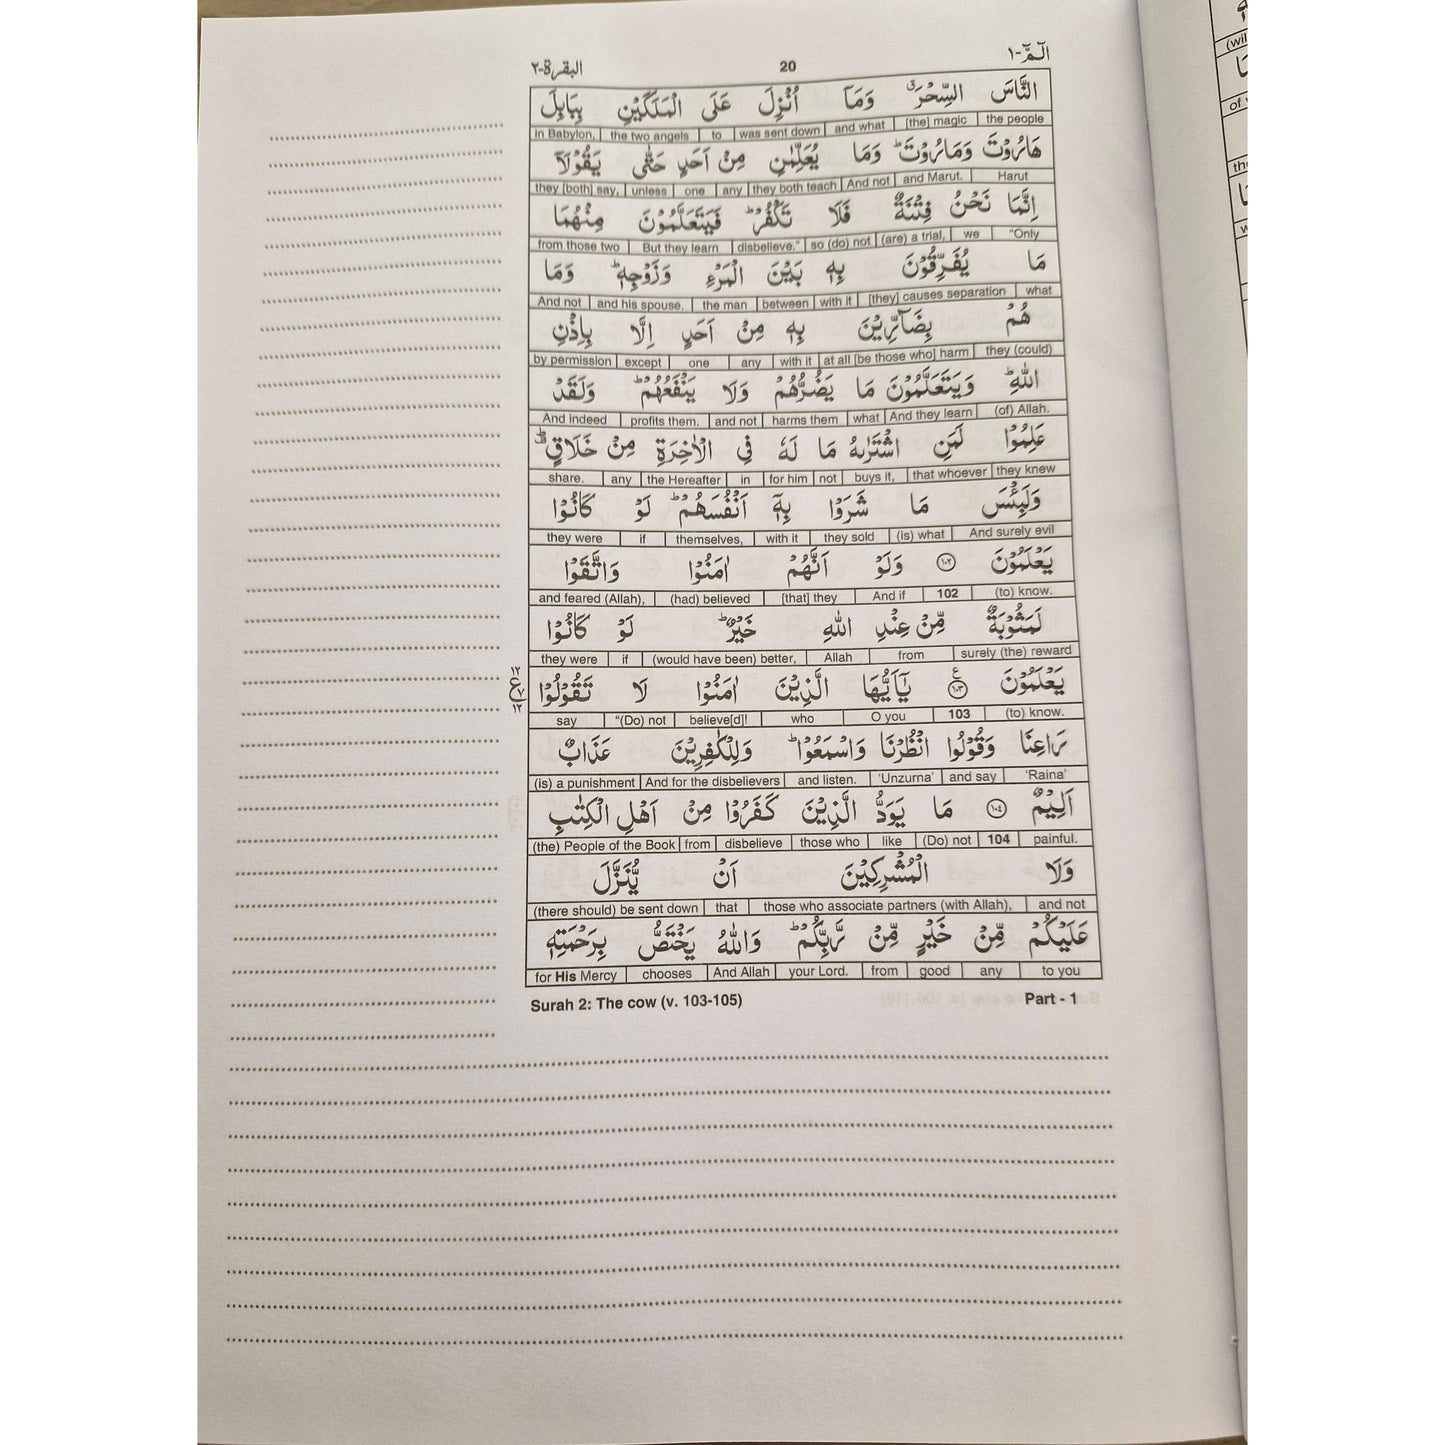 الٓمّٓ-١ 20 البقرة-٢
النَّاسَ السِّحْرَ ۗ وَمَاۤ اُنْزِلَ عَلَى الْمَلَكَيْنِ بِبَابِلَ
in Babylon, the two angels to was sent down and what [the] magic the people
هَارُوْتَ وَمَارُوْتَ ؕ وَمَا يُعَلِّمٰنِ مِنْ اَحَدٍ حَتّٰى يَقُوْلَاۤ
they [both] say, unless one any they both teach And not and Marut. Harut
اِنَّمَا نَحْنُ فِتْنَةٌ فَلَا تَكْفُرْ ؕ فَيَتَعَلَّمُوْنَ مِنْهُمَا
from those two But they learn disbelieve." so (do) not (are) a trial, we "Only
مَا يُفَرِّقُوْنَ بِهٖ بَيْنَ الْمَرْءِ وَزَوْجِهٖ ؕ وَمَا
And not and his spouse. the man between with it [they] causes separation what
هُمْ بِضَآرِّيْنَ بِهٖ مِنْ اَحَدٍ اِلَّا بِاِذْنِ
by permission except one any with it at all [be those who] harm they (could)
اللّٰهِ ؕ وَيَتَعَلَّمُوْنَ مَا يَضُرُّهُمْ وَلَا يَنْفَعُهُمْ ؕ وَلَقَدْ
And indeed profits them. and not harms them what And they learn (of) Allah.
عَلِمُوْا لَمَنِ اشْتَرٰىهُ مَا لَهٗ فِى الْاٰخِرَةِ مِنْ خَلَاقٍ ؕ
share. any the Hereafter in for him not buys it, that whoever they knew
وَلَبِئْسَ مَا شَرَوْا بِهٖۤ اَنْفُسَهُمْ ؕ لَوْ كَانُوْا
they were if themselves, with it they sold (is) what And surely evil
يَعْلَمُوْنَ ١٠٢ وَلَوْ اَنَّهُمْ اٰمَنُوْا وَاتَّقَوْا
and feared (Allah), (had) believed [that] they And if 102 (to) know.
لَمَثُوْبَةٌ مِّنْ عِنْدِ اللّٰهِ خَيْرٌ ؕ لَوْ كَانُوْا
they were if (would have been) better, Allah from surely (the) reward
يَعْلَمُوْنَ ١٠٣ يٰۤاَيُّهَا الَّذِيْنَ اٰمَنُوْا لَا تَقُوْلُوْا
١٢ ع ٧ ١٢
say "(Do) not believe[d]! who O you 103 (to) know.
رَاعِنَا وَقُوْلُوا انْظُرْنَا وَاسْمَعُوْا ؕ وَلِلْكٰفِرِيْنَ عَذَابٌ
(is) a punishment And for the disbelievers and listen. 'Unzurna' and say 'Raina'
اَلِيْمٌ ١٠٤ مَا يَوَدُّ الَّذِيْنَ كَفَرُوْا مِنْ اَهْلِ الْكِتٰبِ
(the) People of the Book from disbelieve those who like (Do) not 104 painful.
وَلَا الْمُشْرِكِيْنَ اَنْ يُّنَزَّلَ
(there should) be sent down that those who associate partners (with Allah), and not
عَلَيْكُمْ مِّنْ خَيْرٍ مِّنْ رَّبِّكُمْ ؕ وَاللّٰهُ يَخْتَصُّ بِرَحْمَتِهٖ
for His Mercy chooses And Allah your Lord. from good any to you
Surah 2: The cow (v. 103-105) Part - 1